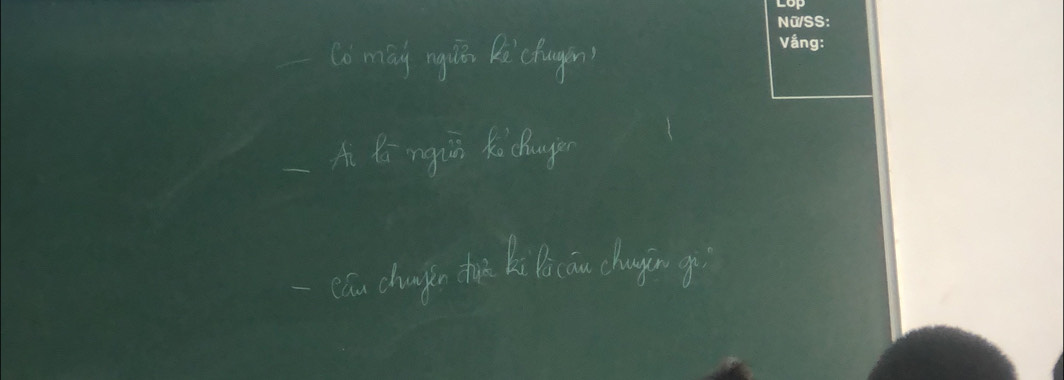 Lớp
Nữ/SS:
Vắng:
– Có mấy người kể chuyện?
– Ai là người kể chuyện
– Câu chuyện được kể là câu chuyện gì?